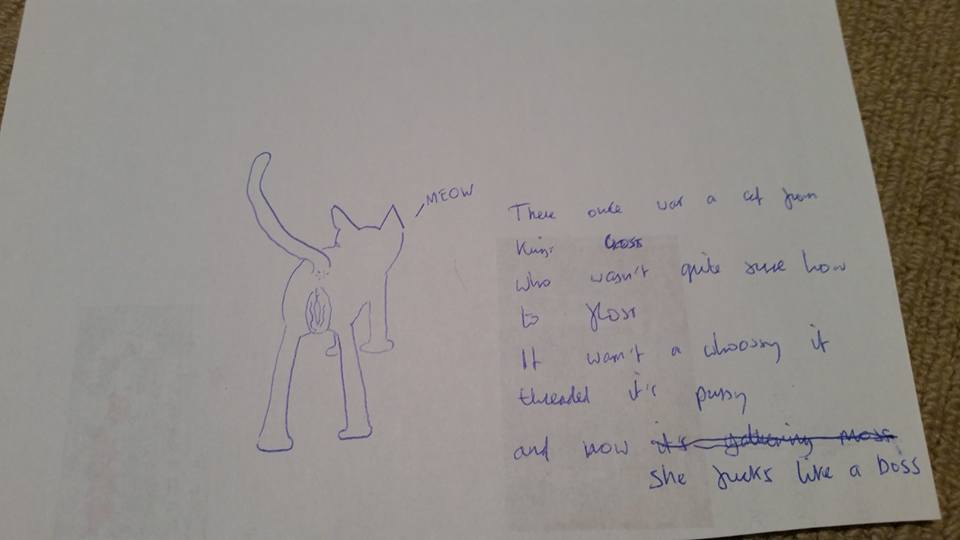 MEOW
There once was a cat from
Kings Cross
who wasn't quite sure how
to floss
It wasn't a whoossy it
threaded it's pussy
and now it's gathering moss
she fucks like a boss